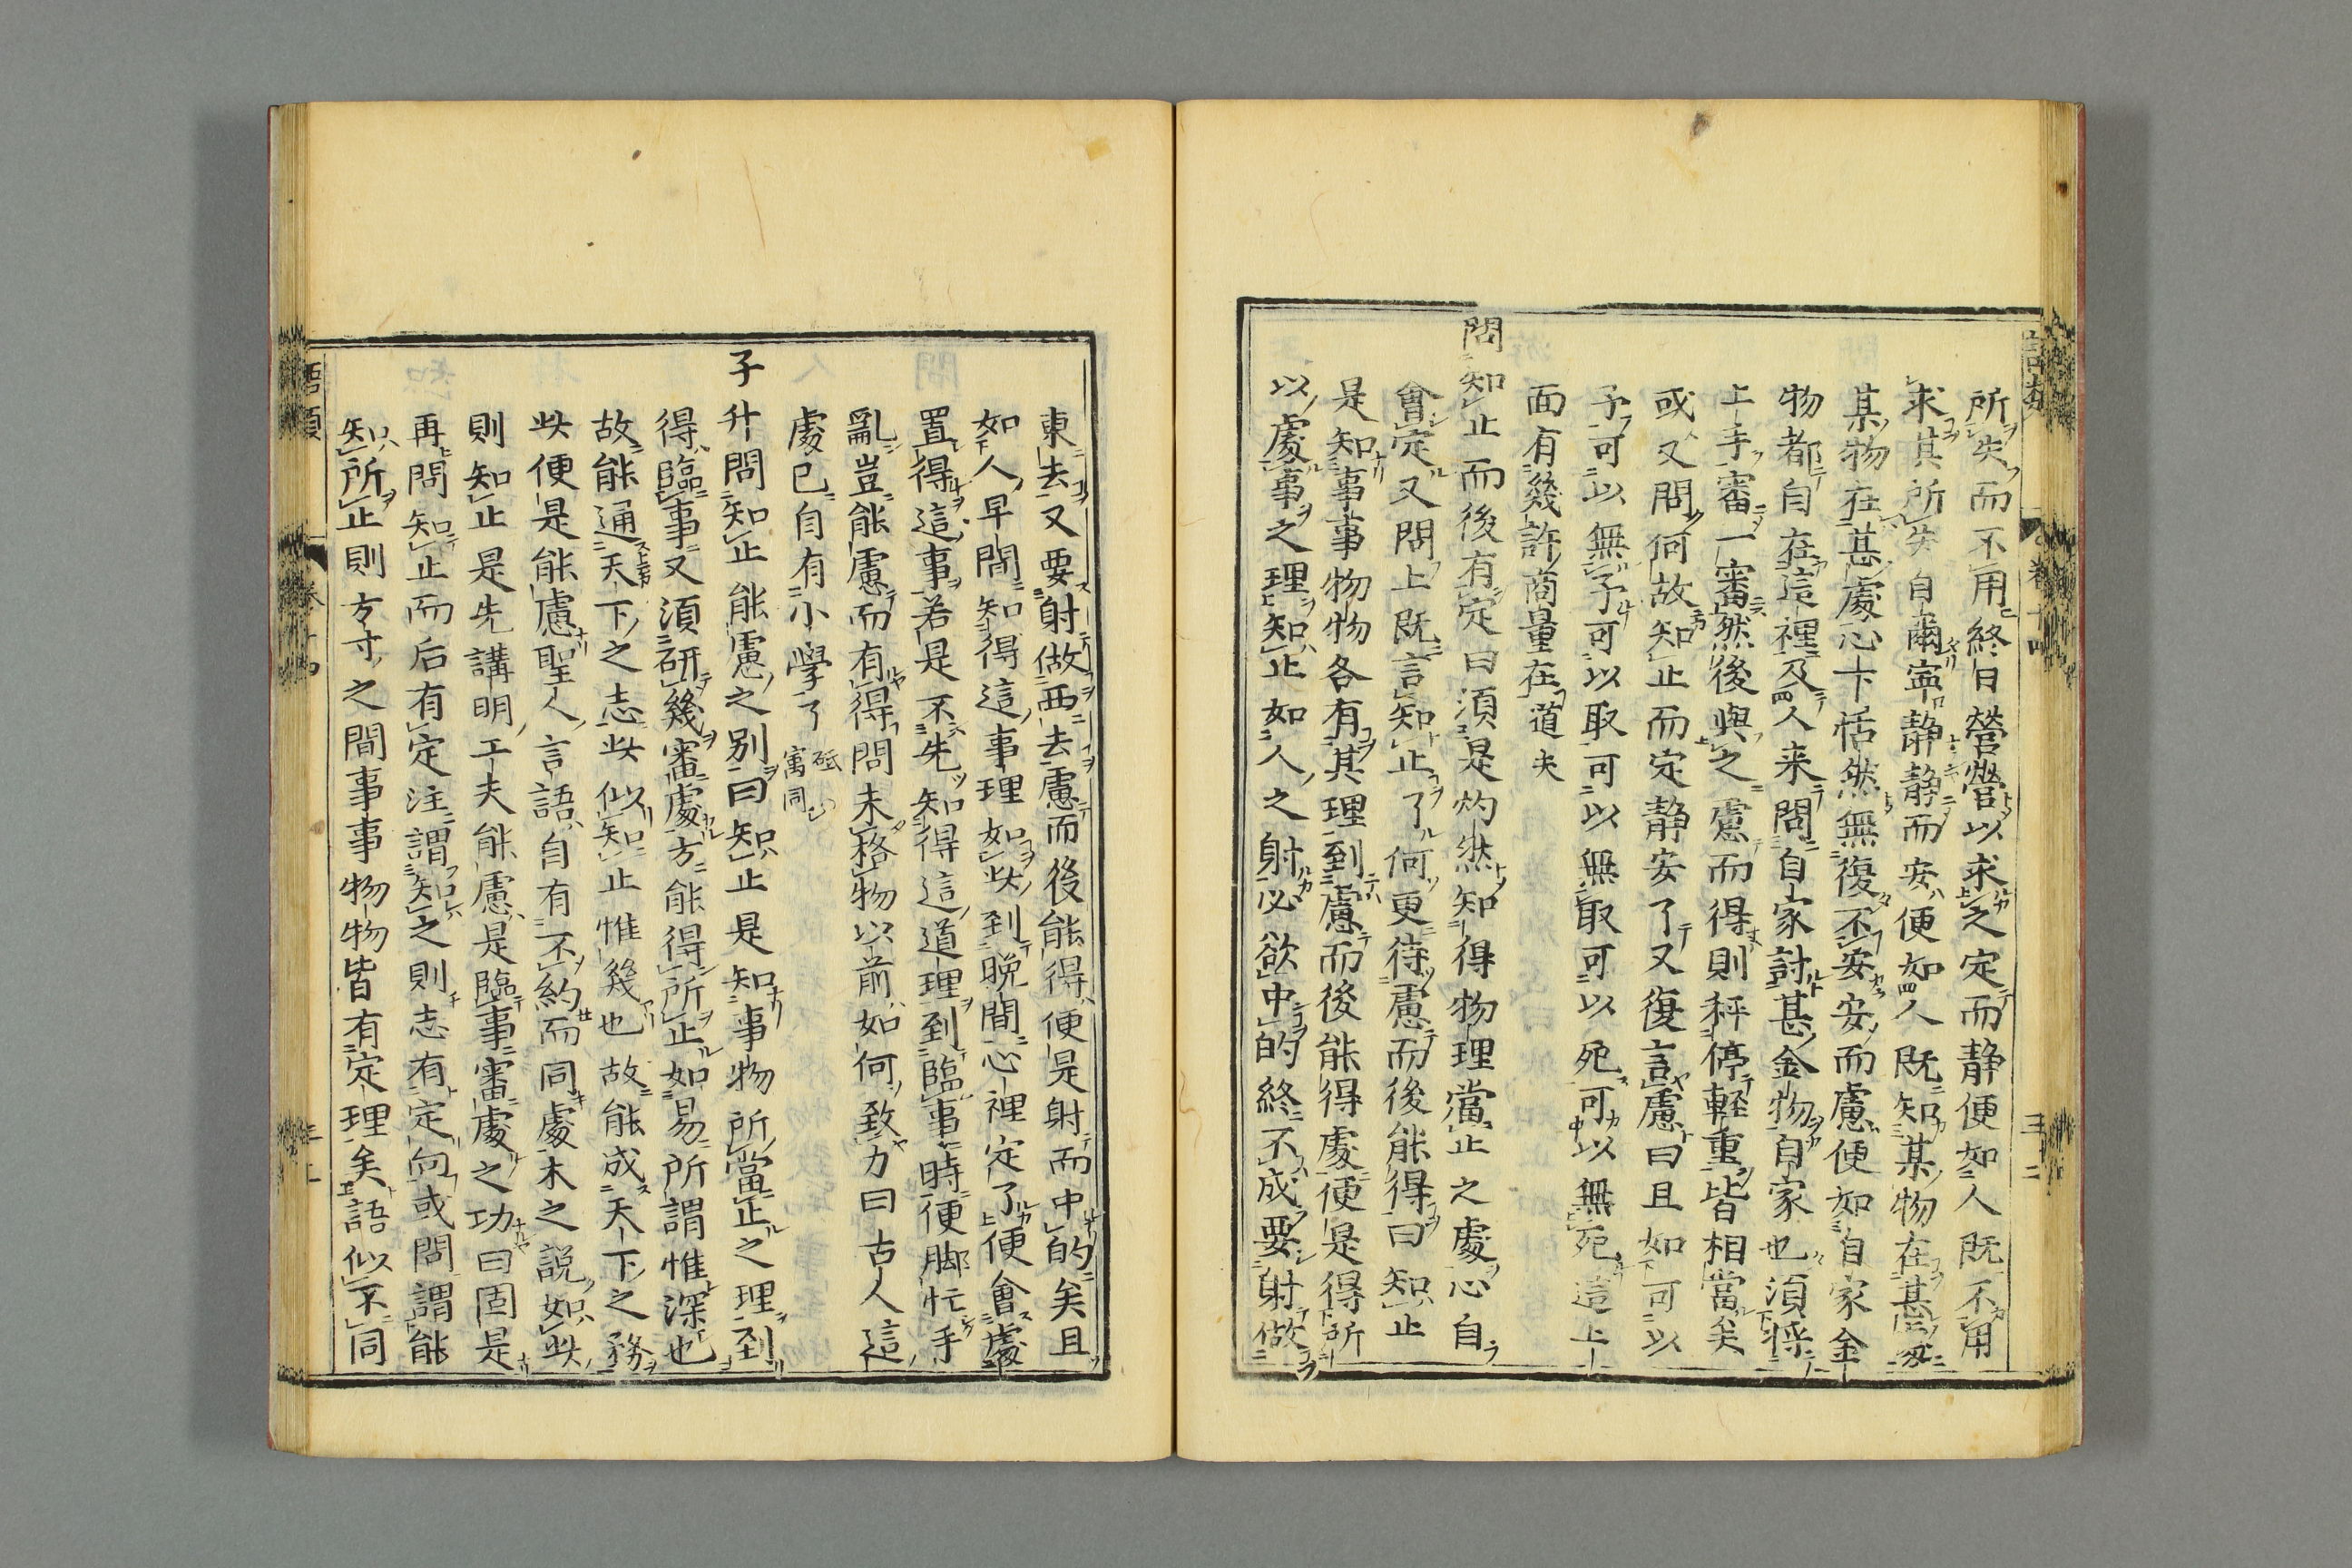 所失而不用終日營營以求之定而静便如人既不用
求其所失自爾寧静静而安便如人既知某物在甚處
某物在甚處心下恬然無復不安安而慮便如自家金
物都自在這裡及人来問自家討甚金物自家也須将
上手審一審然後與之慮而得則秤停軽重皆相當矣
或又問何故知止而定静安了又復言慮曰且如可以
予可以無予可以取可以無取可以死可以無死這上
面有幾許商量在道夫
問知止而後有定曰須是灼然知得物理當止之處心自
會定又問上既言知止了何更待慮而後能得曰知止
是知事事物物各有其理到慮而後能得處便是得所
以處事之理知止如人之射必欲中的終不成要射做
東去又要射做西去慮而後能得便是射而中的矣且
如人早間知得這事理如此到晩間心裡定了便會處
置得這事若是不先知得這道理到臨事時便脚忙手
亂豈能慮而有得問未格物以前如何致力曰古人這
處已自有小學了 砥寓同
子升問知止能慮之別曰知止是知事物所當止之理到
得臨事又須研幾審處方能得所止如易所謂惟深也
故能通天下之志此似知止惟幾也故能成天下之務
此便是能慮聖人言語自有不約而同處木之說如此
則知止是先講明工夫能慮是臨事審處之功曰固是
再問知止而后有定注謂知之則志有定向或問謂能
知所止則方寸之間事事物物皆有定理矣語似不同
語類 卷十四